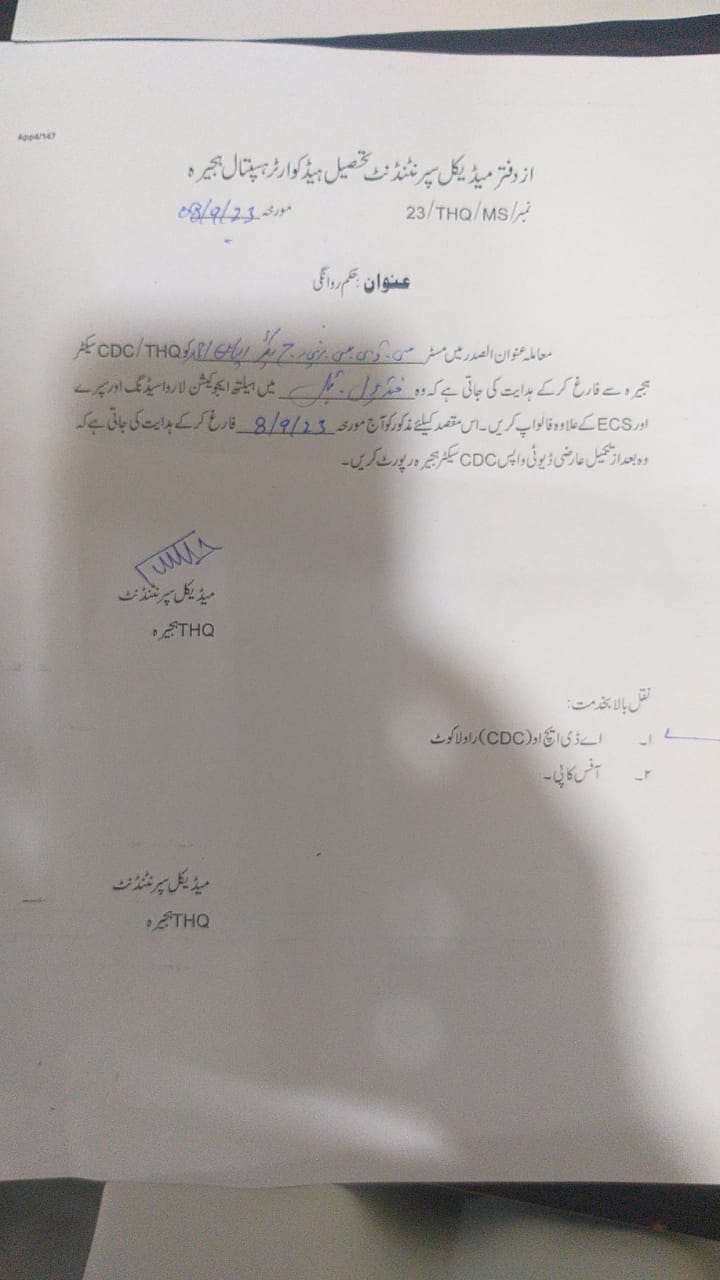 App4/147
از دفتر میڈیکل سپرنٹنڈنٹ تحصیل ہیڈ کوارٹر ہسپتال ہجیرہ
نمبر/23/THQ/MS مورخہ 08/9/23
عنوان :حکم روانگی
معاملہ عنوان الصدر میں مسٹر سی۔ڈی۔سی کو CDC/THQ سیکٹر
ہجیرہ سے فارغ کر کے ہدایت کی جاتی ہے کہ وہ میں ہیلتھ ایجوکیشن لارواسیڈنگ اور سپرے
اور ECS کے علاوہ فالواپ کریں۔ اس مقصد کیلئے مذکور کو آج مورخہ 8/9/23 فارغ کر کے ہدایت کی جاتی ہے کہ
وہ بعد از تکمیل عارضی ڈیوٹی واپس CDC سیکٹر ہجیرہ رپورٹ کریں۔
میڈیکل سپرنٹنڈنٹ
THQ ہجیرہ
نقل بالا بخدمت:
۱۔ اے ڈی ایچ او (CDC) راولاکوٹ
۲۔ آفس کاپی۔
میڈیکل سپرنٹنڈنٹ
THQ ہجیرہ